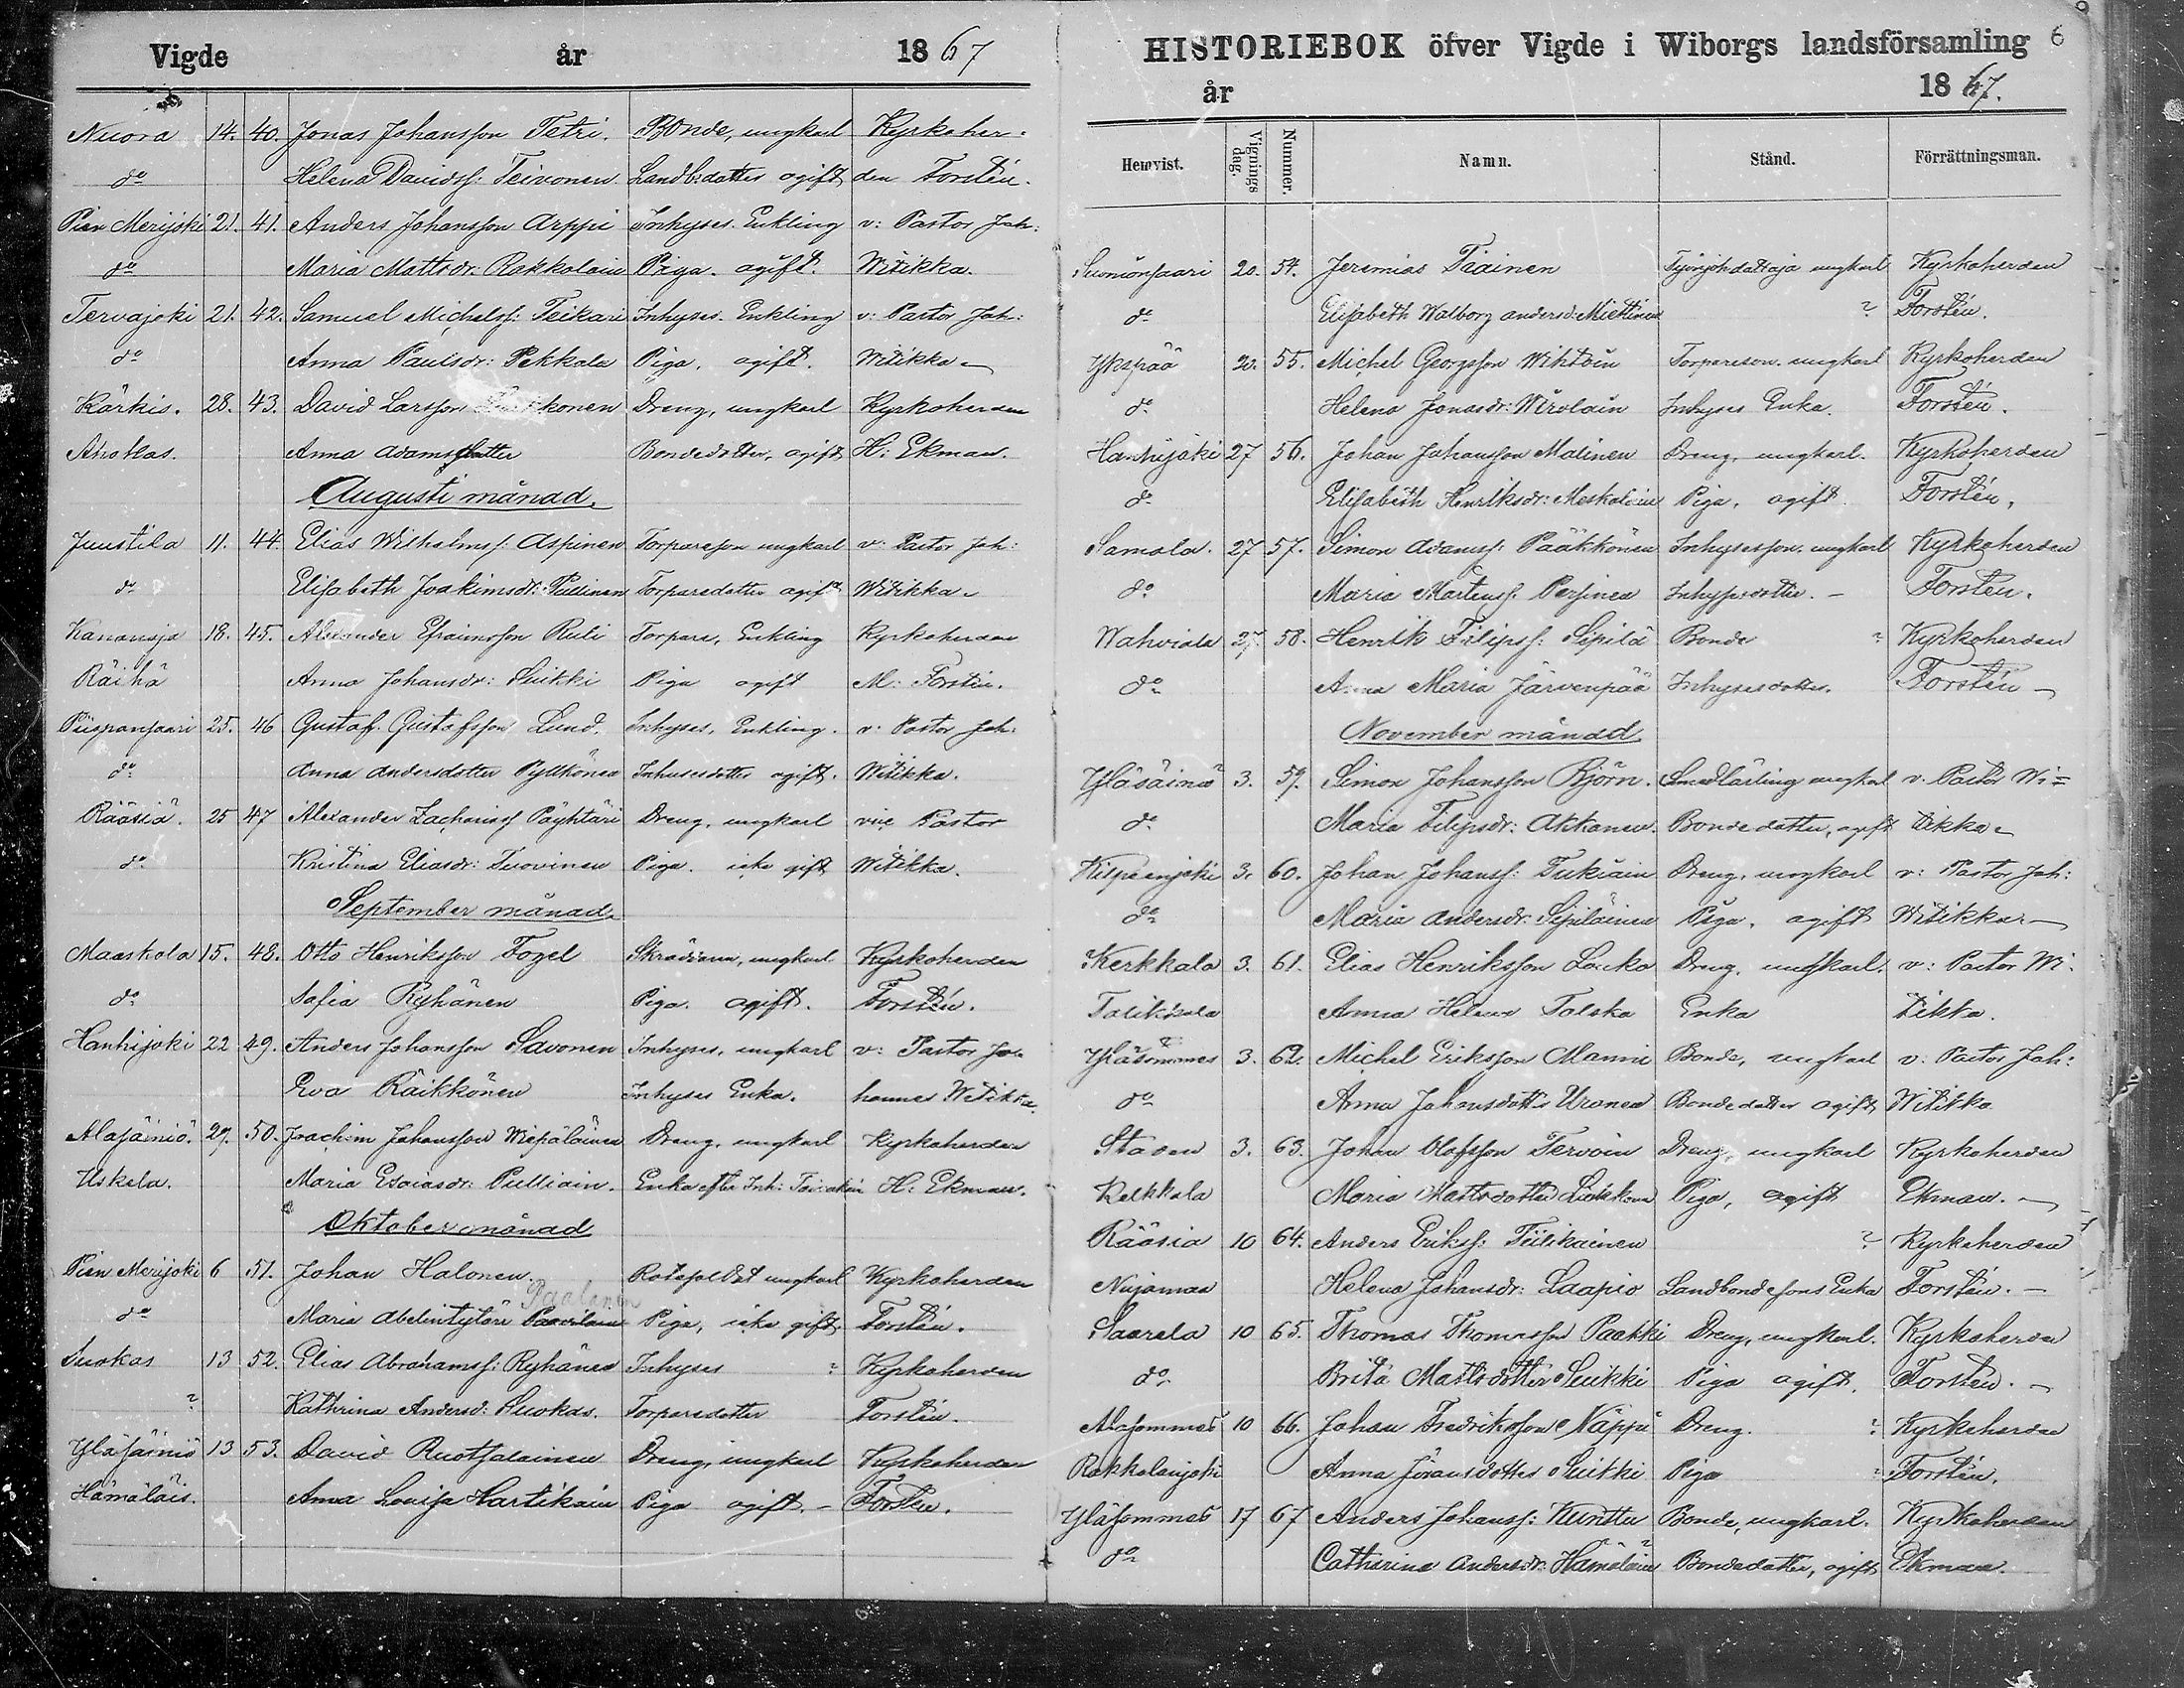 Vigde år 1867
Nuora 14. 40. Jonas Johansson Tetri. Bonde, ungkarl Kyrkoher-
do Helena Davidsf: Teivonen Landb:dotter ogift den Forstén.
Pien Merijoki 21. 41. Anders Johansson Arppi Inhyses. Enkling v: Pastor Joh:
do Maria Mattsdr: Rakkolain Piga. ogift. Witikka.
Tervajoki 21. 42. Samuel Michelsf: Teikari Inhyses. Enkling v: Pastor Joh:
do Anna Paulsdr: Pekkala Piga. ogift. Witikka
Kärkis. 28. 43. David Larsson Dreng, ungkarl Kyrkoherden
Ahokas. Anna Adamsdotter Bondedotter, ogift H: Ekman.
Augusti månad.
Juustila 11. 44. Elias Wilhelmsf: Aspinen Torpareson ungkarl v: Pastor Joh:
do Elisabeth Joakimsdr: Pullinen Torparedotter ogift Witikka
Kananoja 18. 45. Alexander Efraimsson Ruti Torpare, Enkling Kyrkoherden
Räihä Anna Johansdr: Suikki Piga ogift M: Forstén.
Piispansaari 25. 46 Gustaf Gustafsson Lund. Inhyses, Enkling. v: Pastor Joh:
do Anna Andersdotter Pyllkönen Inhysesdotter ogift. Witikka.
Rääsiä. 25 47 Alexander Zachariasf Päyhtäri Dreng, ungkarl vice Pastor
do Kristina Eliasdr: Turovinen Piga. icke gift Witikka.
September månad.
Maaskola 15. 48. Otto Henriksson Fogel Skräddare, ungkarl Kyrkoherden
do Sofia Ryhänen Piga. ogift. Forstén.
Hanhijoki 22 49. Anders Johansson Savonen Inhyses, ungkarl v: Pastor Jo-
Eva Räikkönen Inhyses Enka. hannes Witikka
Alasäiniö. 29. 50. Joachim Johansson Wiepäläinen Dreng, ungkarl Kyrkoherden
Uskela. Maria Esaiasdr: Pulliain. Enka efter Inh: H: Ekman.
Oktober månad
Pien Merijoki 6 51. Johan Halonen. Rotesoldat ungkarl Kyrkoherden
Paalanen
do Maria Abelintytär Piga, icke gift Forstén.
Suokas 13 52. Elias Abrahamsf: Ryhänen Inhyses ? Kyrkoherden
? Kathrina Andersd: Suokas. Torparedotter Forstén.
Yläsäiniö 13 53. David Ruotsalainen Dreng, ungkarl Kyrkoherden
Hämäläis. Anna Lovisa Hartikain Piga ogift. - Forstén.
HISTORIEBOK öfver Vigde i Wiborgs landsförsamling 6
år 1867.
Hemvist. Vignings dag. Nummer. Namn. Stånd. Förrättningsman.
Suomensaari 20. 54. Jeremias Tiainen ungkarl Kyrkoherden
do Elisabeth Walborg Andersd: Miettinen ? Forstén.
Ykspää 20. 55. Michel Georgsson Wihtöin Torpareson. ungkarl Kyrkoherden
do Helena Jonasdr: Wirolain Inhyses Enka. Forstén.
Hanhijoki 27 56. Johan Johansson Malinen Dreng, ungkarl. Kyrkoherden
do Elisabeth Henriksdr: Meskalain Piga, ogift. Forstén.
Samola. 27 57. Simon Adamsf: Pääkkönen Inhysesson. ungkarl Kyrkoherden
do Maria Mårtensf. Persinen Inhysesdotter. - Forstén.
Wahviala 27. 58. Henrik Filipsf: Sipilä Bonde ? Kyrkoherden
do Anna Maria Järvenpää Inhysesdotter. Forstén
November månad
Yläsäiniö 3. 59. Simon Johansson Björn. Smedlärling ungkarl v. Pastor Wi=
do Maria Filipsdr: Akkanen. Bondedotter, ogift tikka
Kilpeenjoki 3. 60. Johan Johansf: Tukiain Dreng, ungkarl v: Pastor Joh:
do Maria Andersdr: Sipiläinen Piga, ogift Witikka.
Kerkkala 3. 61. Elias Henriksson Louko Dreng, ungkarl. v: Pastor Wi-
Talikkala Anna Helena Talska Enka tikka.
Yläsommes 3. 62. Michel Eriksson Manni Bonde, ungkarl v: Pastor Joh:
do Anna Johansdotter Uronen Bondedotter ogift Witikka
Staden 3. 63. Johan Olofsson Tervoin Dreng, ungkarl Kyrkoherden
Kelkkala Maria Mattsdotter Liukkonen Piga, ogift Ekman.
Rääsiä 10 64. Anders Eriksf: Tiilikainen ? Kyrkoherden
Nuijamaa Helena Johansdr: Laapio Landbondesons Enka Forstén.
Saarela 10 65. Thomas Thomasson Paakki Dreng, ungkarl. Kyrkoherden
do Brita Mattsdotter Suikki Piga ogift. Forstén.
Alasommes 10 66. Johan Fredriksson Näppi Dreng. ? Kyrkoherden
Rakkolanjoki Anna Göransdotter Suikki Piga ? Forstén.
Yläsommes 17 67 Anders Johansf: Kunttu Bonde, ungkarl. Kyrkoherden
do Catharina Andersdr: Hämäläin Bondedotter, ogift Ekman.